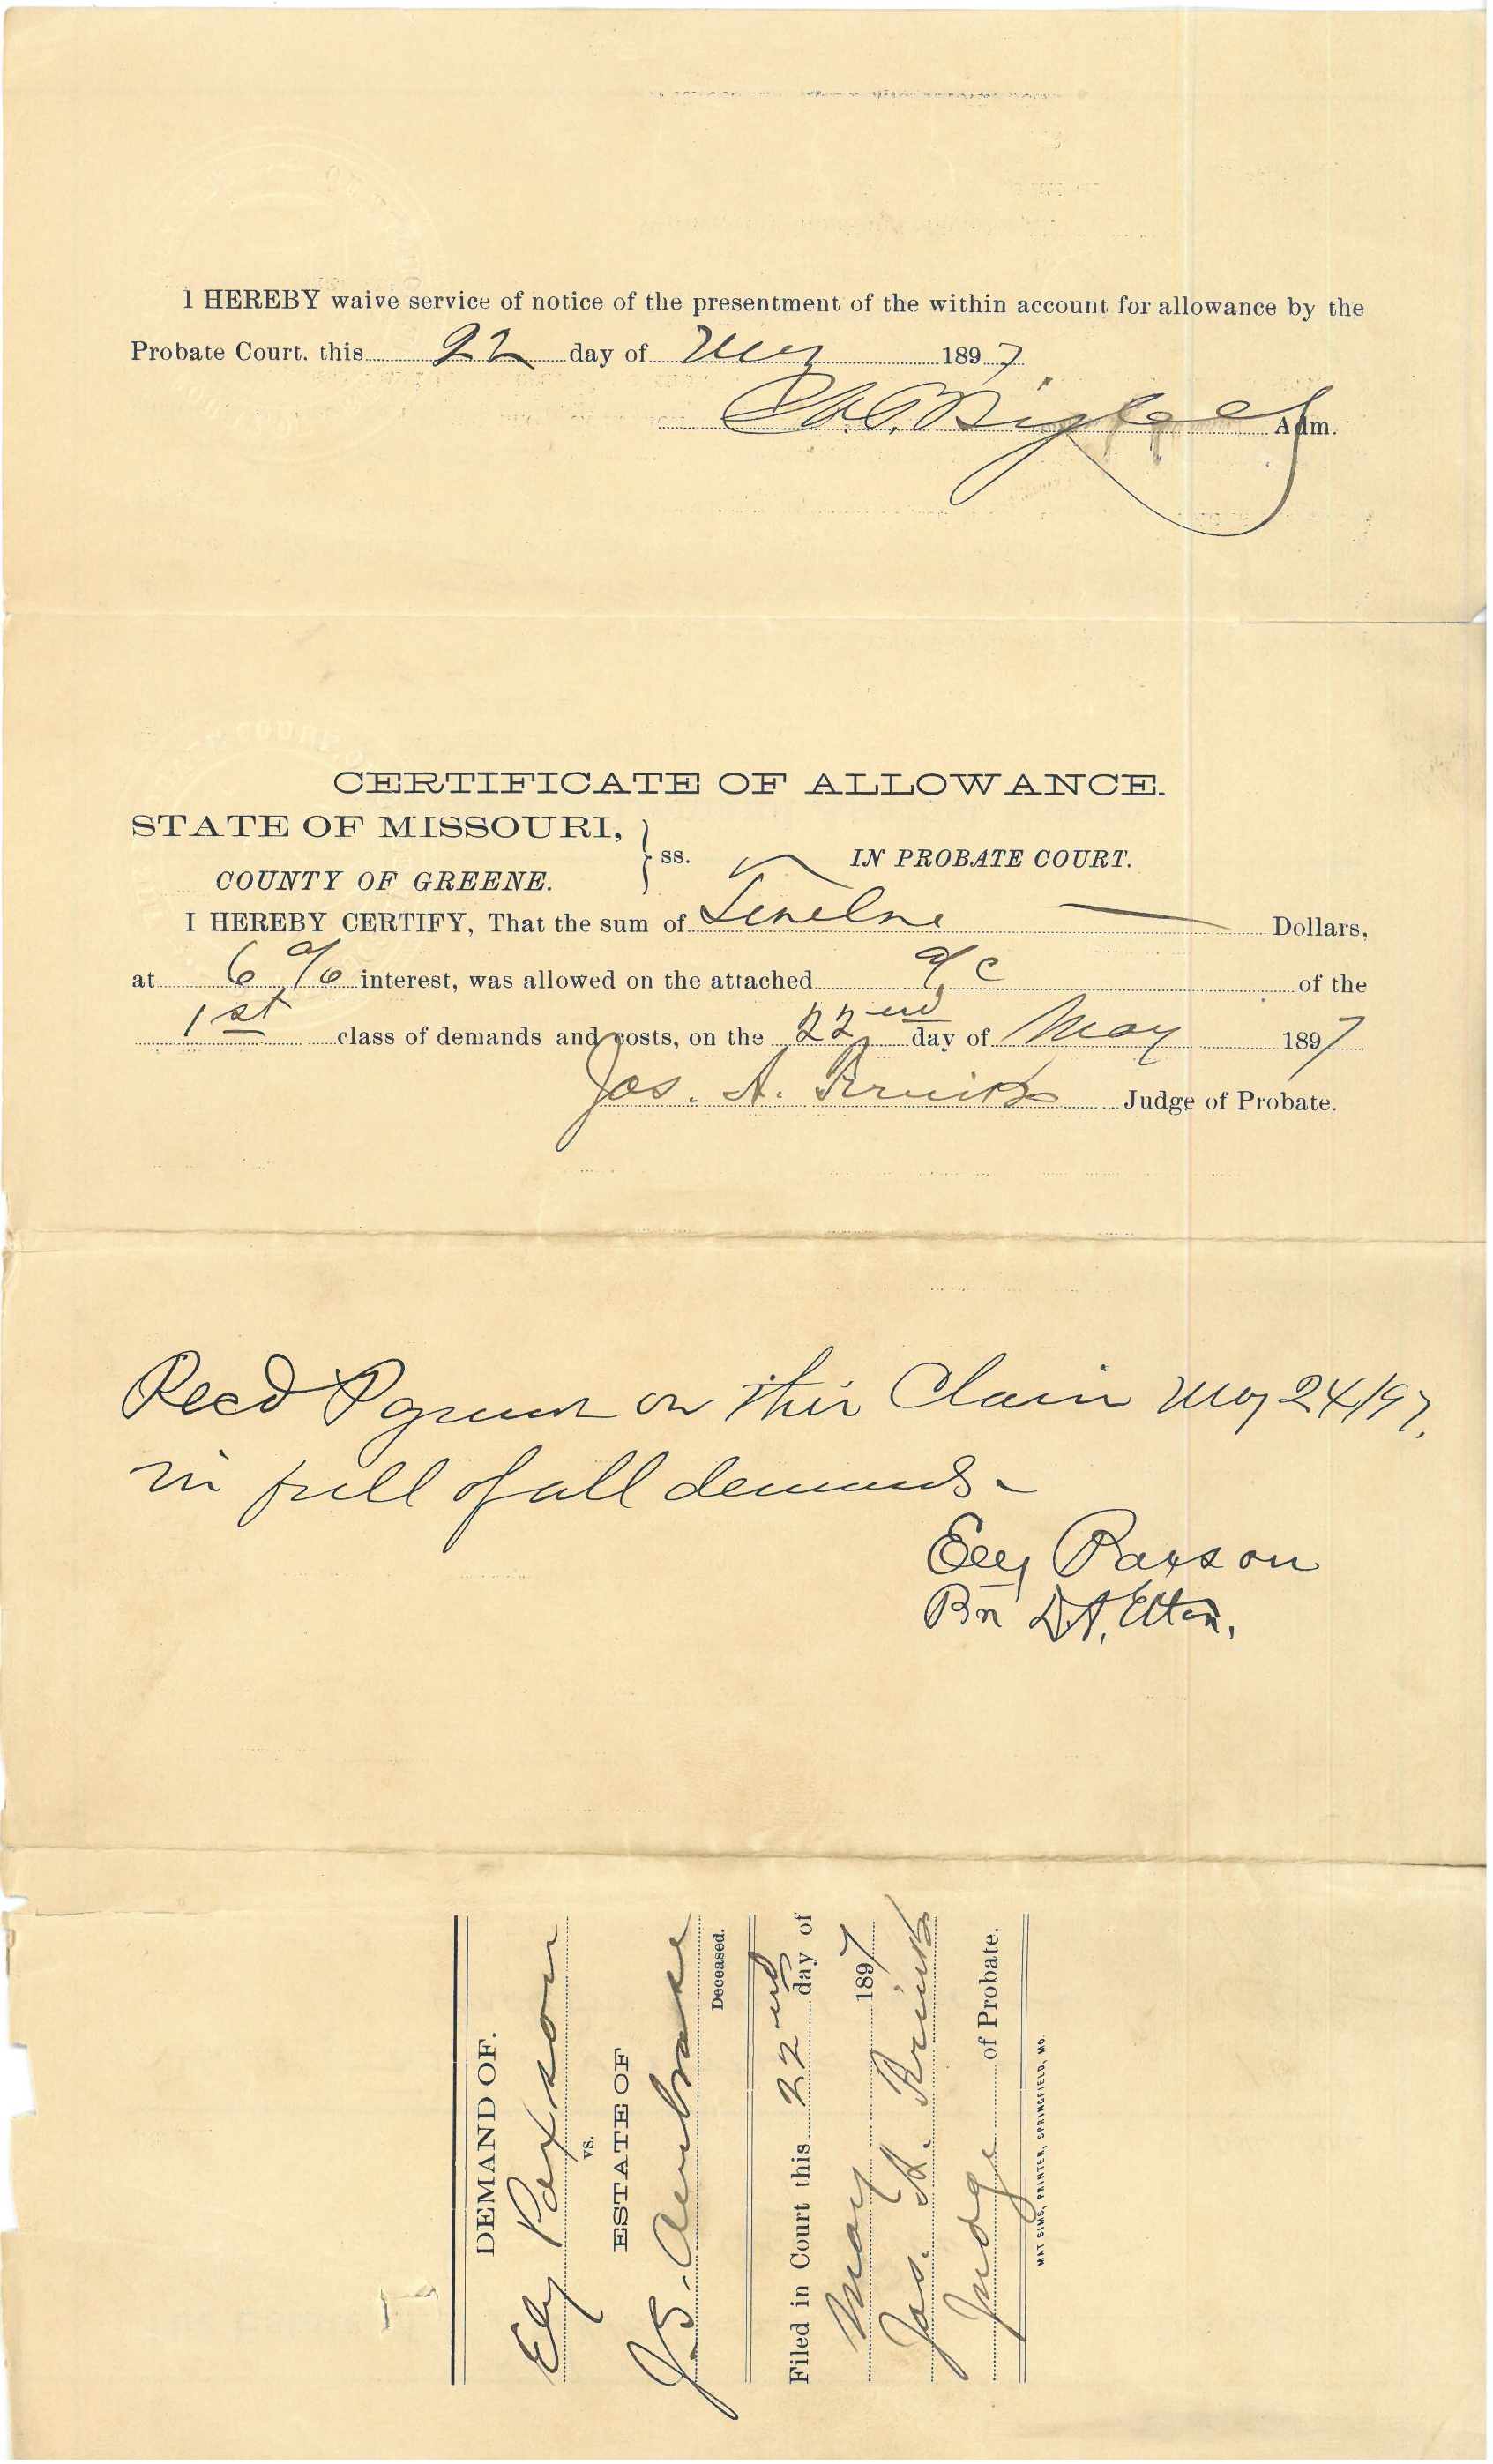 I HEREBY waive service of notice of the presentment of the within account for allowance by the
Probate Court. this 22 day of May 1897
Adm.
CERTIFICATE OF ALLOWANCE.
STATE OF MISSOURI,
COUNTY OF GREENE. } ss. IN PROBATE COURT.
I HEREBY CERTIFY, That the sum of Twelve Dollars,
at 6 % interest, was allowed on the attached a/c of the
1st class of demands and costs, on the 22nd day of May 1897
Jos. A. Judge of Probate.
Recd Payment on this Claim May 24/97.
in full of all demands.
Ely Paxson
DEMAND OF.
Ely Paxson
vs.
ESTATE OF
J.S. Ambrose
Deceased.
Filed in Court this 22nd day of
May 1897
Jos. A.
Judge of Probate.
MAT SIMS, PRINTER, SPRINGFIELD, MO.